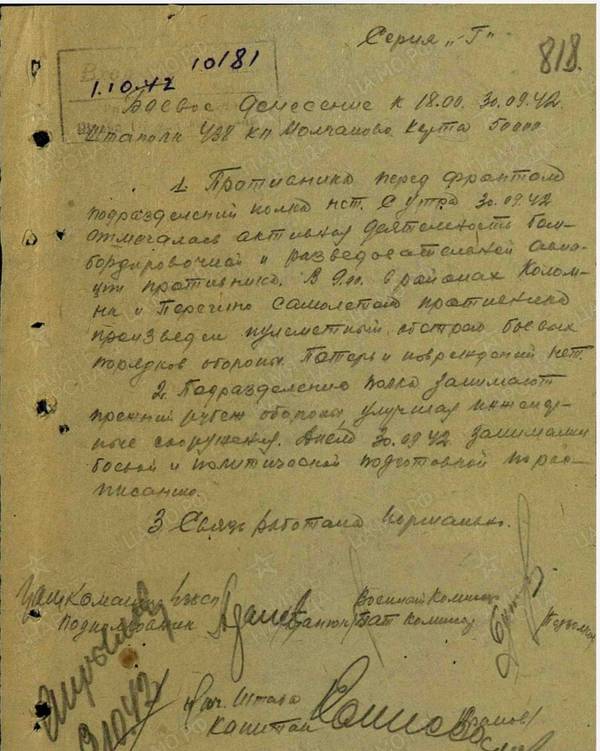 Серия „Г"
818.
10181
1.10.42
Боевое донесение к 18.00. 30.09.42.
Штаполк 438 КП Молчаново Карта 50000
1. Противника перед фронтом
подразделений полка нет. С утра 30.09.42
отмечалась активная деятельность бом-
бардировочной и разведовательной авиа-
ции противника. В 9.00. в районах Колом-
на и самолетом противника
произведен пулеметный обстрел боевых
порядков обороны. Потерь и повреждений нет.
2. Подразделения полка занимают
прежний рубеж обороны, улучшая инженер-
ные сооружения. Днем 30.09.42 занимались
боевой и политической подготовкой по рас-
писанию.
3. Связь работала нормально.
Подполковник
Военный Комиссар
Бат. Комиссар
Нач. Штаба
Капитан